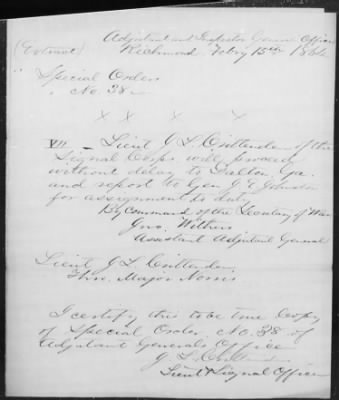 Adjutant and Inspector Genrs Office
(Extract) Richmond Feby 15th 1864
Special Orders
No. 38
X X X X
VII _ Lieut J L Crittenden of the
Signal Corps will proceed
without delay to Dalton, Ga.
and report to Gen J E Johnston
for assignment to duty
By Command of the Secretary of War
Jno. Withers
Assistant Adjutant General
Lieut J L Crittenden
Thro. Major Norris
I certify this to be true Copy
of Special Order, No. 38 of
Adjutant Generals Office
J L Crittenden
Lieut & Signal Officer